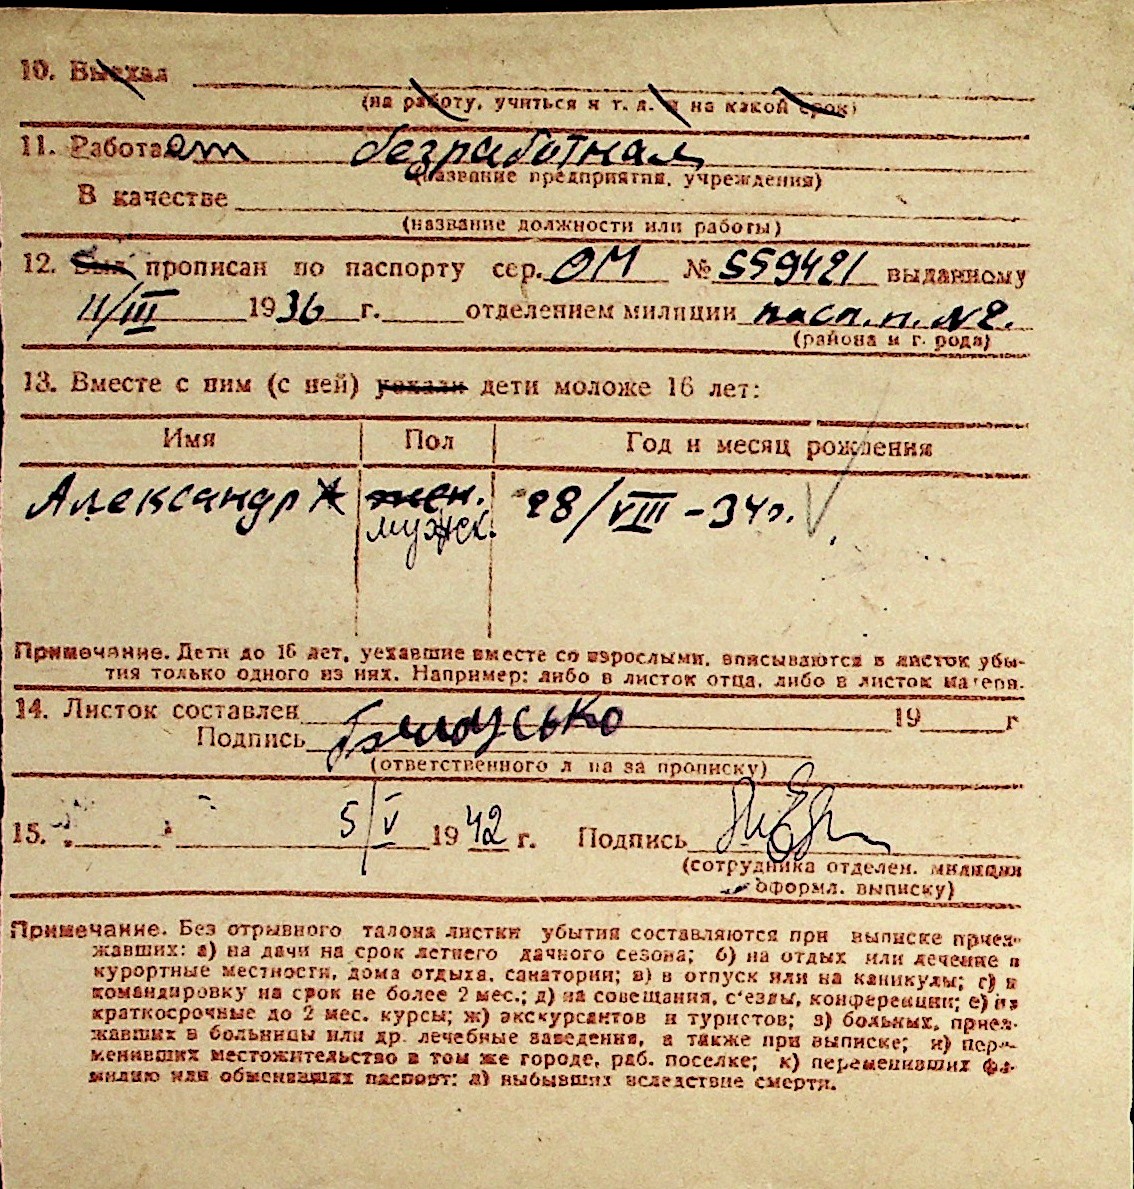 10. Выехал
(на работу, учиться и т. д. и на какой срок)
11. Работает безработная
(название предприятия, учреждения)
В качестве
(название должности или работы)
12. Был прописан по паспорту сер. ОМ № 559421 выданному
11/III 1936 г. отделением милиции пасп. п. №2.
(района и г. рода)
13. Вместе с ним (с ней) уехали дети моложе 16 лет:
Имя Пол Год и месяц рождения
Александр жен. 28/VIII-34г.
мужск.
Примечание. Дети до 16 лет, уехавшие вместе со взрослыми, вписываются в листок убы-
тия только одного из них. Например: либо в листок отца, либо в листок матери.
14. Листок составлен 19 г
Подпись
(ответственного л на за прописку)
15. 5/V 1942 г. Подпись
(сотрудника отделен. милиции
оформл. выписку)
Примечание. Без отрывного талона листки убытия составляются при выписке приез-
жавших: а) на дачи на срок летнего дачного сезона; б) на отдых или лечение в
курортные местности, дома отдыха, санатории; в) в отпуск или на каникулы; г) в
командировку на срок не более 2 мес.; д) на совещания, с'езды, конференции; е) на
краткосрочные до 2 мес. курсы; ж) экскурсантов и туристов; з) больных, приез-
жавших в больницы или др. лечебные заведения, а также при выписке; и) пере-
менивших местожительство в том же городе, раб. поселке; к) переменивших фа-
милию или обменявших паспорт; л) выбывших вследствие смерти.